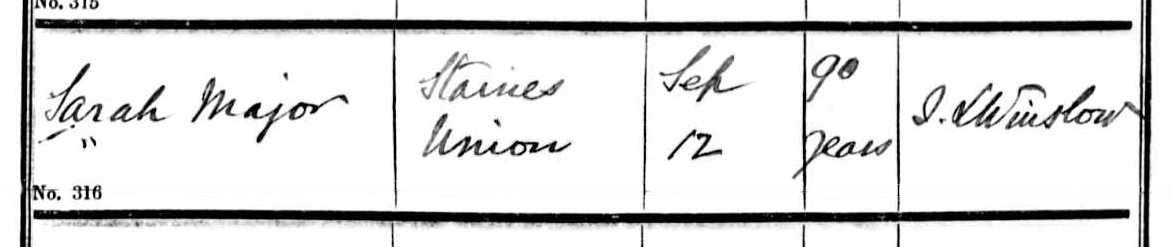 No. 315
Sarah Major
"
No. 316
Staines
Union
Sep
12
90
years
Winslow